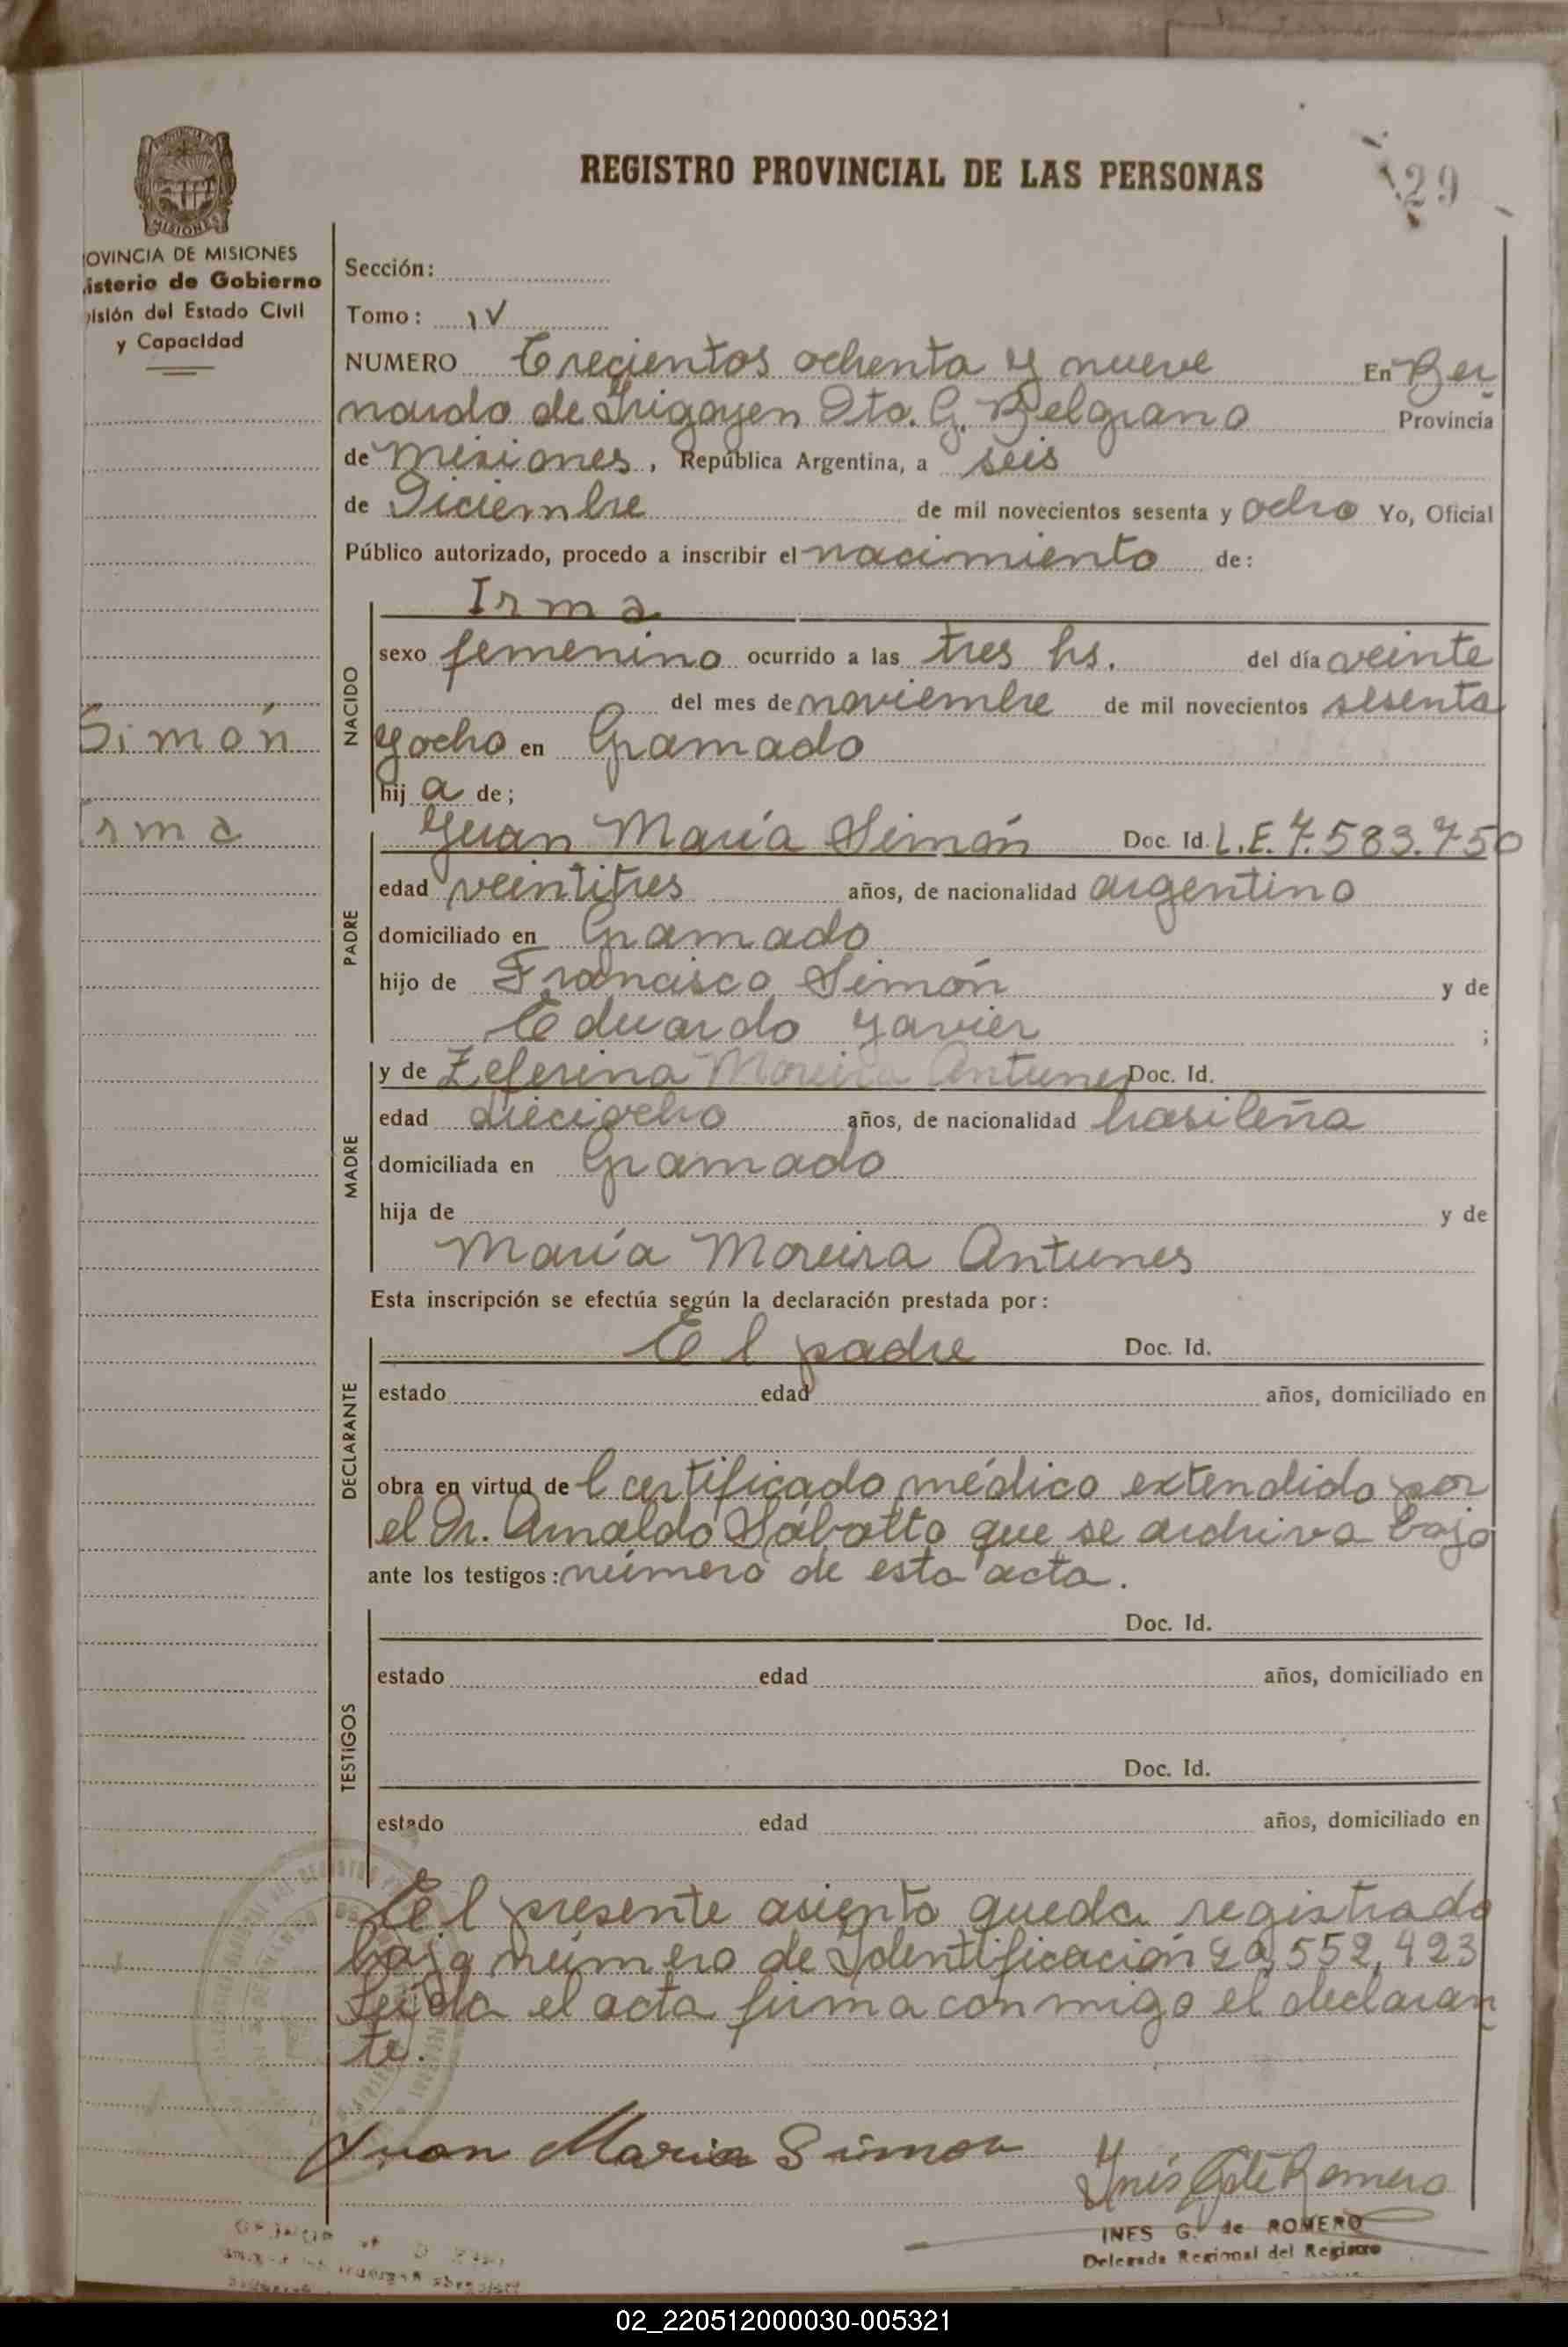 REGISTRO PROVINCIAL DE LAS PERSONAS
29
MISIONES
OVINCIA DE MISIONES
isterio de Gobierno
isión del Estado Civil
y Capacidad
Sección:
Tomo: IV
NUMERO Trecientos ochenta y nueve En Ber
nardo de Irigoyen Dto. G. Belgrano Provincia
de Misiones, República Argentina, a seis
de Diciembre de mil novecientos sesenta y ocho Yo, Oficial
Público autorizado, procedo a inscribir el nacimiento de:
NACIDO
Irma
sexo femenino ocurrido a las tres hs. del día veinte
del mes de noviembre de mil novecientos sesenta
Simón
y ocho en Gramado
hija de;
Irma
PADRE
Juan María Simón Doc. Id. L.E. 7.583.750
edad veintitres años, de nacionalidad argentino
domiciliado en Gramado
hijo de Francisco Simón y de
Eduardo Javier ;
MADRE
y de Zeferina Moreira Antunes Doc. Id.
edad dieciocho años, de nacionalidad brasileña
domiciliada en Gramado
hija de y de
María Moreira Antunes
Esta inscripción se efectúa según la declaración prestada por:
DECLARANTE
El padre Doc. Id.
estado edad años, domiciliado en
obra en virtud de l certificado médico extendido por
el Dr. Arnaldo Sábatto que se archiva bajo
ante los testigos: número de esta acta.
TESTIGOS
Doc. Id.
estado edad años, domiciliado en
Doc. Id.
estado edad años, domiciliado en
El presente asiento queda registrado
bajo número de Identificación 20,552,423
Leída el acta firma conmigo el declaran
te.
Juan Maria Simon
Inés G de Romero
INES G. de ROMERO
Delegada Regional del Registro
02_220512000030-005321